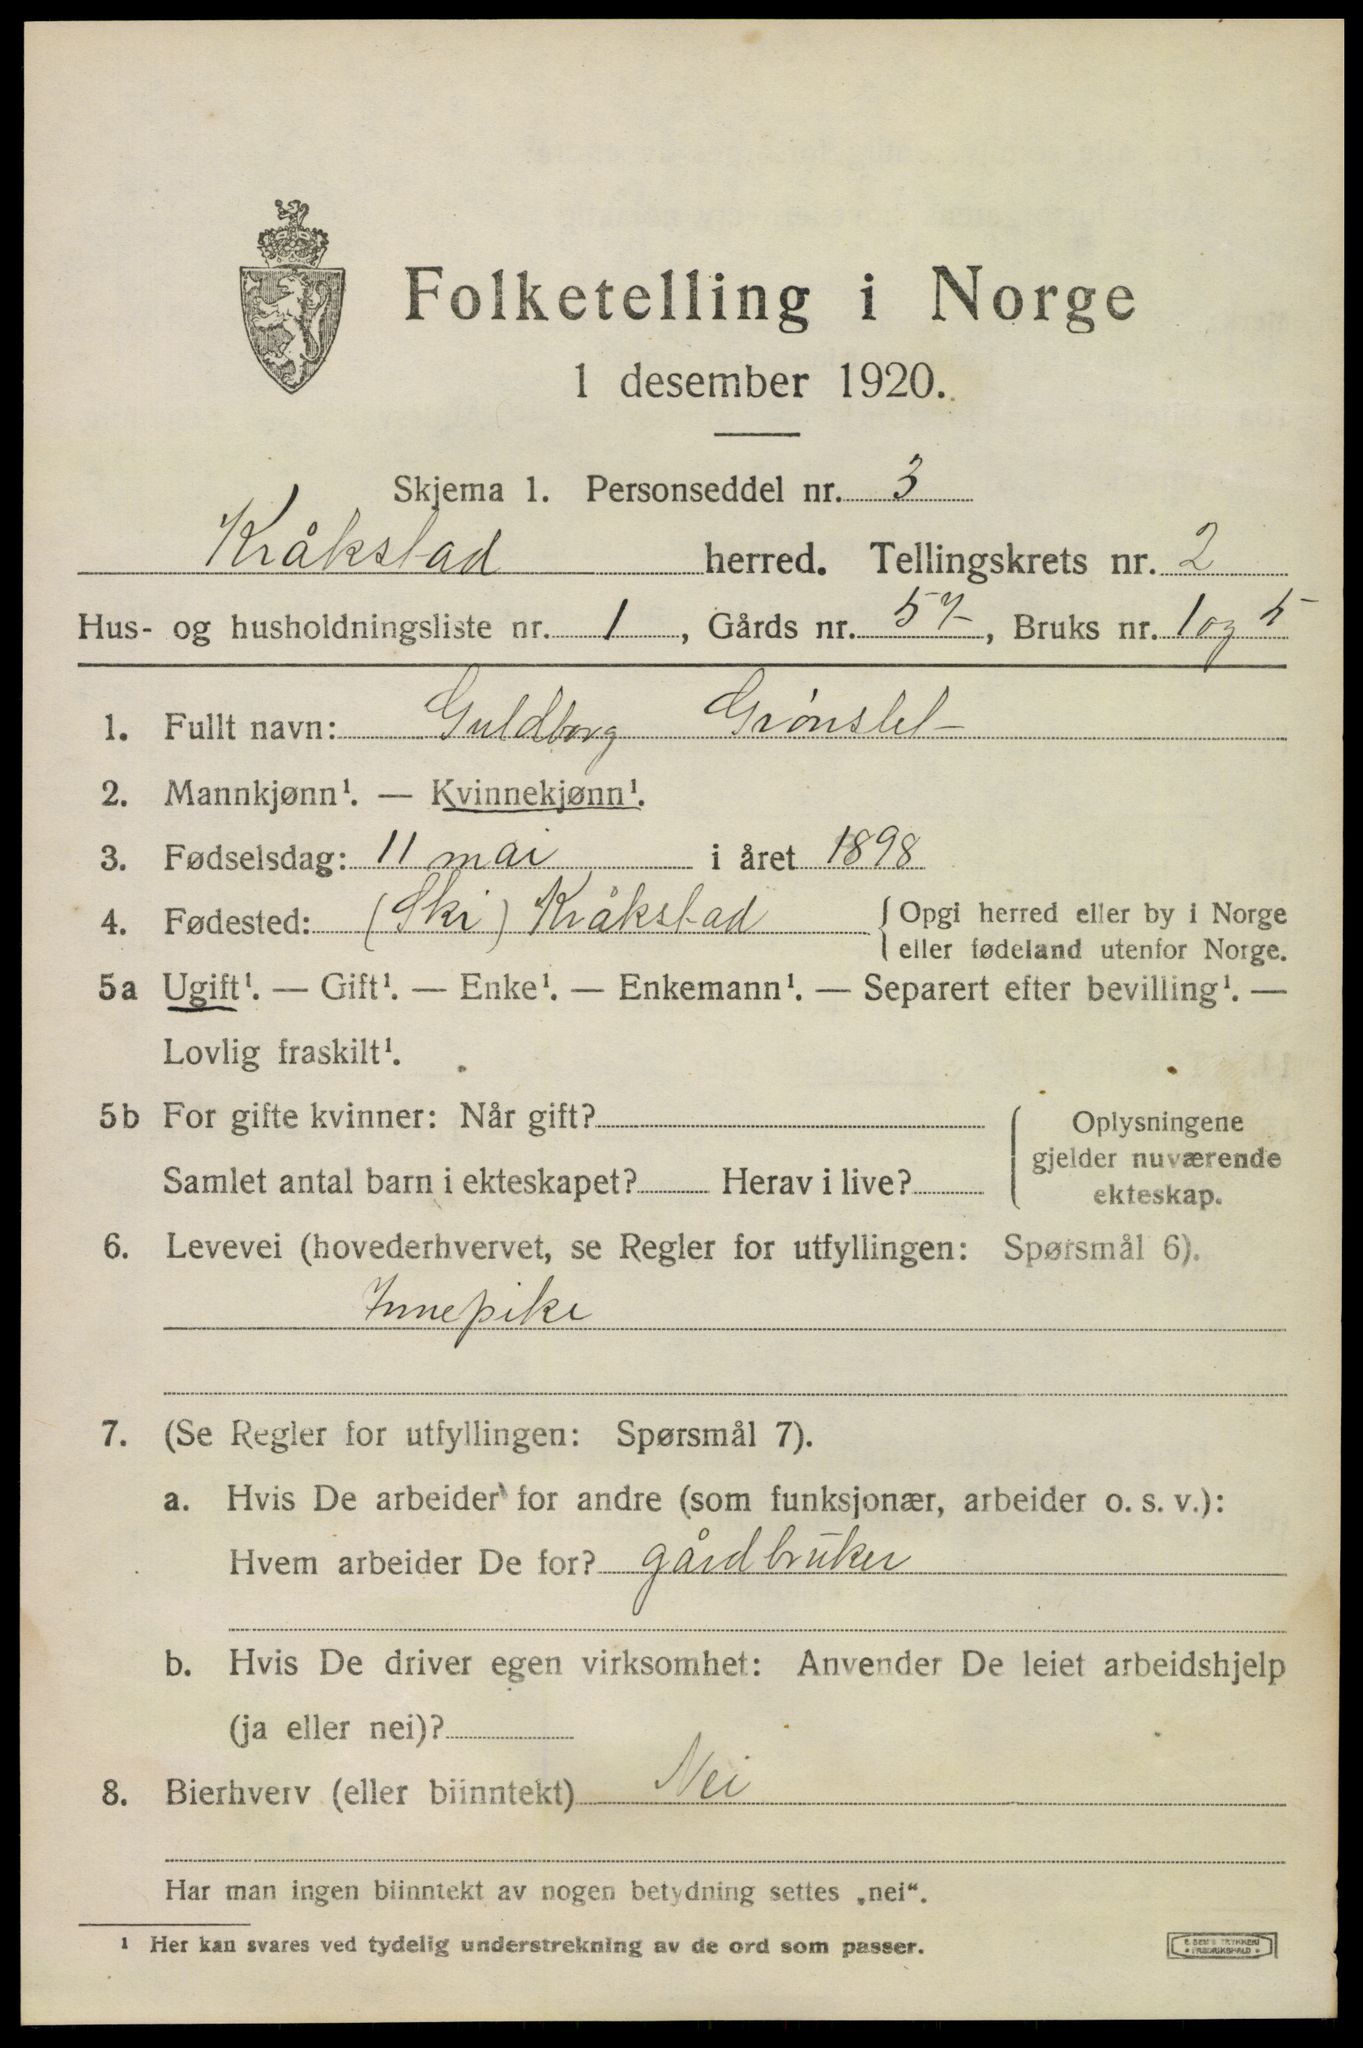 Folketelling i Norge
1 desember 1920.
Skjema 1. Personseddel nr. 3
Kråkstad herred. Tellingskrets nr. 2
Hus- og husholdningsliste nr. 1, Gårds nr. 57, Bruks nr. 1 og 5
1. Fullt navn: Guldborg Grønslet
2. Mannkjønn¹. — Kvinnekjønn¹.
3. Fødselsdag: 11 mai i året 1898
4. Fødested: (Ski) Kråkstad { Opgi herred eller by i Norge
eller fødeland utenfor Norge.
5a Ugift¹. — Gift¹. — Enke¹. — Enkemann¹. — Separert efter bevilling¹. —
Lovlig fraskilt¹.
5b For gifte kvinner: Når gift?
Samlet antal barn i ekteskapet? Herav i live?
Oplysningene
gjelder nuværende
ekteskap.
6. Levevei (hovederhvervet, se Regler for utfyllingen: Spørsmål 6).
Innepike
7. (Se Regler for utfyllingen: Spørsmål 7).
a. Hvis De arbeider for andre (som funksjonær, arbeider o. s. v.):
Hvem arbeider De for? gårdbruker
b. Hvis De driver egen virksomhet: Anvender De leiet arbeidshjelp
(ja eller nei)?
8. Bierhverv (eller biinntekt) Nei
Har man ingen biinntekt av nogen betydning settes „nei“.
¹ Her kan svares ved tydelig understrekning av de ord som passer.